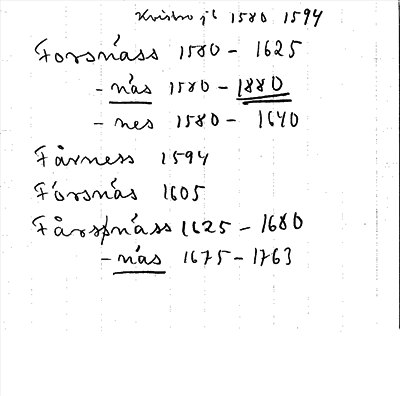 1580 1594
Forsnäss 1580 - 1625
- näs 1580 - 1880
- nes 1580 - 1640
Fårness 1594
Fórsnäs 1605
Fårsnäss 1625 - 1680
- näs 1675 - 1763